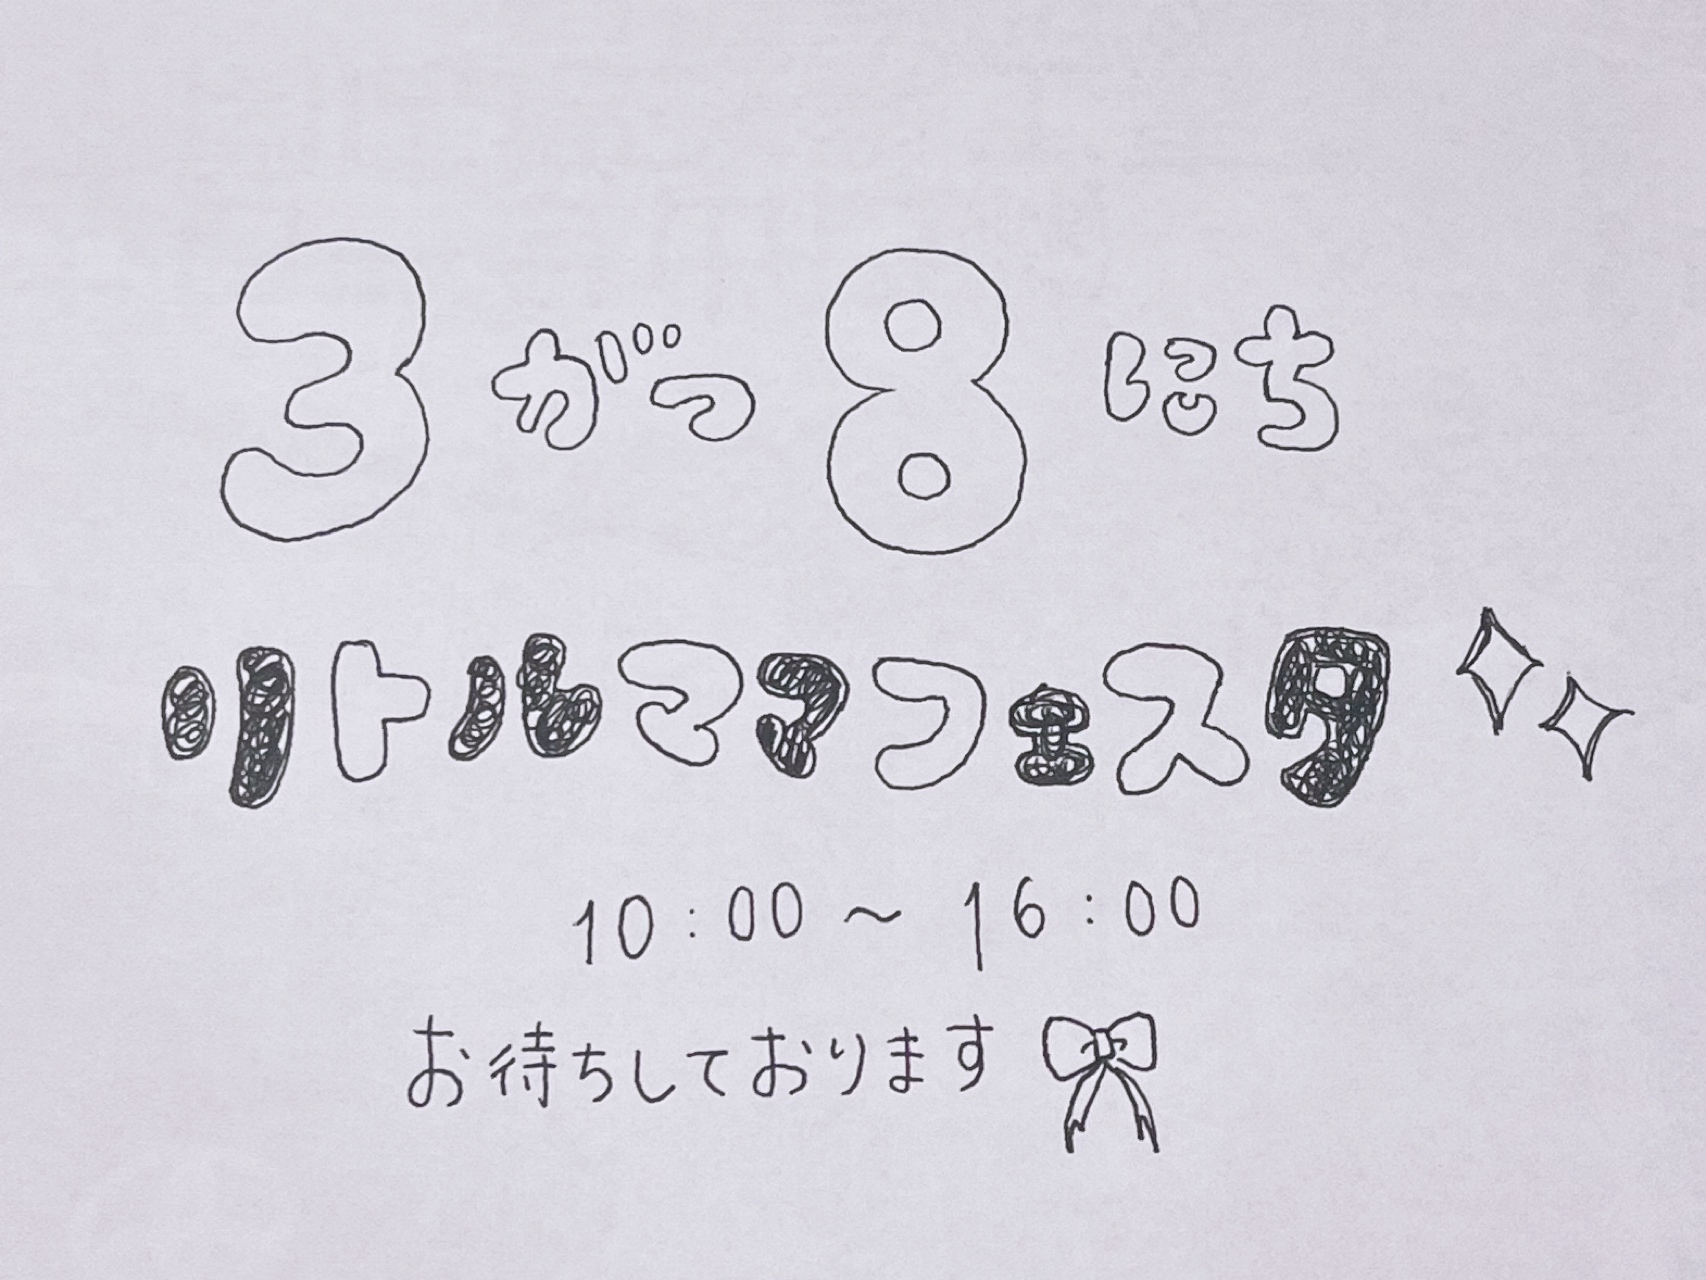 3がつ8にち
リトルママフェスタ
10:00～16:00
お待ちしております